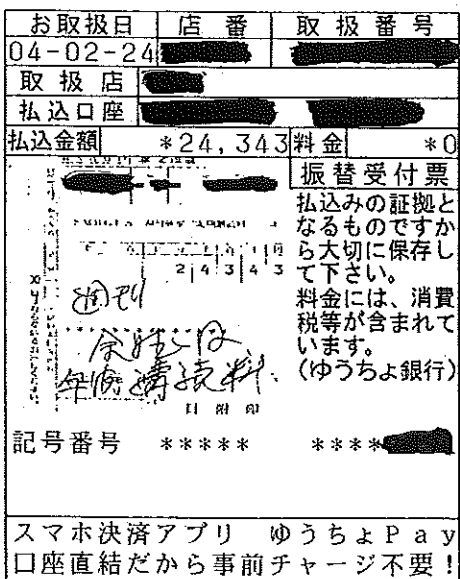 お取扱日 店番 取扱番号
04-02-24
取扱店
払込口座
払込金額 *24,343 料金 *0
振替受付票
払込みの証拠と
なるものですか
ら大切に保存し
て下さい。
料金には、消費
税等が含まれて
います。
(ゆうちょ銀行)
2 4 3 4 3
週刊
年間購読料
日附印
記号番号 ***** ****
スマホ決済アプリ ゆうちょPay
口座直結だから事前チャージ不要!